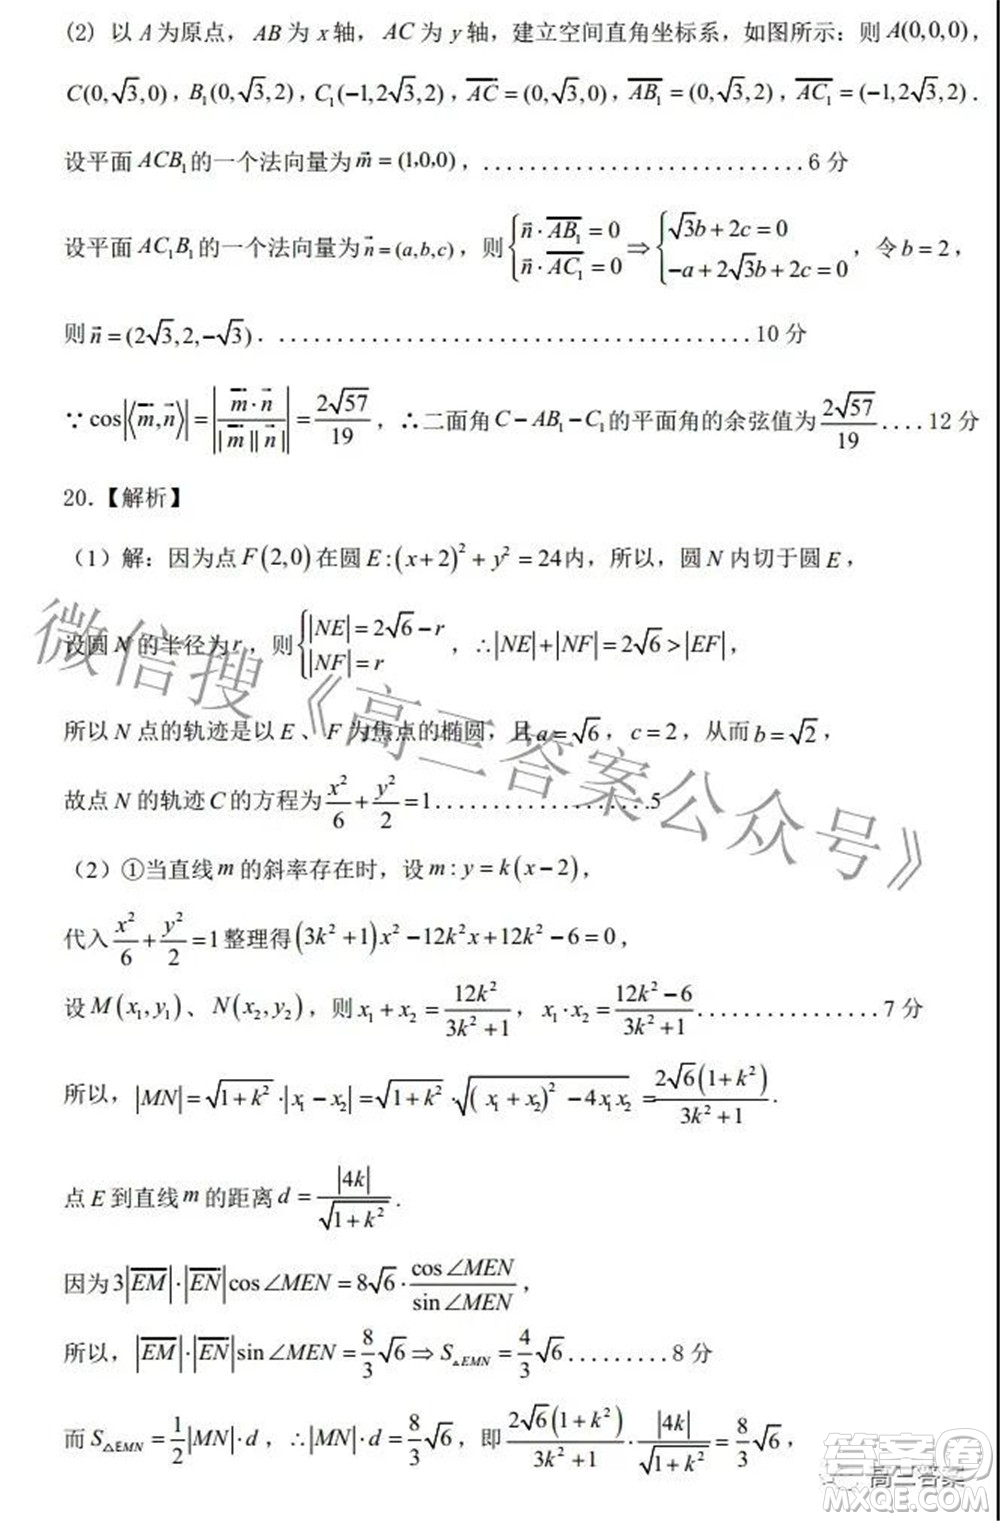 (2) 以 A 为原点，AB 为 x 轴，AC 为 y 轴，建立空间直角坐标系，如图所示：则 A(0,0,0)，
C(0,√3,0)，B₁(0,√3,2)，C₁(−1,2√3,2)，AC⃗=(0,√3,0)，AB₁⃗=(0,√3,2)，AC₁⃗=(−1,2√3,2)．
设平面 ACB₁ 的一个法向量为 m⃗=(1,0,0)，............................6 分
设平面 AC₁B₁ 的一个法向量为 n⃗=(a,b,c)，则{n⃗·AB₁⃗=0, n⃗·AC₁⃗=0 ⇒ {√3b+2c=0, −a+2√3b+2c=0，令 b=2，
则 n⃗=(2√3,2,−√3)．..........................................10 分
∵cos|⟨m⃗,n⃗⟩|=|m⃗·n⃗/(|m⃗||n⃗|)|=2√57/19，∴二面角 C−AB₁−C₁ 的平面角的余弦值为 2√57/19 ....12 分
20.【解析】
（1）解：因为点 F(2,0) 在圆 E:(x+2)²+y²=24 内，所以，圆 N 内切于圆 E，
设圆 N 的半径为 r，则{|NE|=2√6−r, |NF|=r，∴|NE|+|NF|=2√6>|EF|，
所以 N 点的轨迹是以 E、F 为焦点的椭圆，且 a=√6，c=2，从而 b=√2，
故点 N 的轨迹 C 的方程为 x²/6+y²/2=1...................5
（2）①当直线 m 的斜率存在时，设 m:y=k(x−2)，
代入 x²/6+y²/2=1 整理得 (3k²+1)x²−12k²x+12k²−6=0，
设 M(x₁,y₁)、N(x₂,y₂)，则 x₁+x₂=12k²/(3k²+1)，x₁·x₂=(12k²−6)/(3k²+1)................7 分
所以，|MN|=√(1+k²)·|x₁−x₂|=√(1+k²)·√((x₁+x₂)²−4x₁x₂)=2√6(1+k²)/(3k²+1).
点 E 到直线 m 的距离 d=|4k|/√(1+k²).
因为 3|EM⃗|·|EN⃗|cos∠MEN=8√6·cos∠MEN/sin∠MEN，
所以，|EM⃗|·|EN⃗|sin∠MEN=8/3√6⇒S△EMN=4/3√6.........8 分
而 S△EMN=1/2|MN|·d，∴|MN|·d=8/3√6，即 2√6(1+k²)/(3k²+1)·|4k|/√(1+k²)=8/3√6，
微信搜《高三答案公众号》
高三答案
答案圈
MXQE.COM